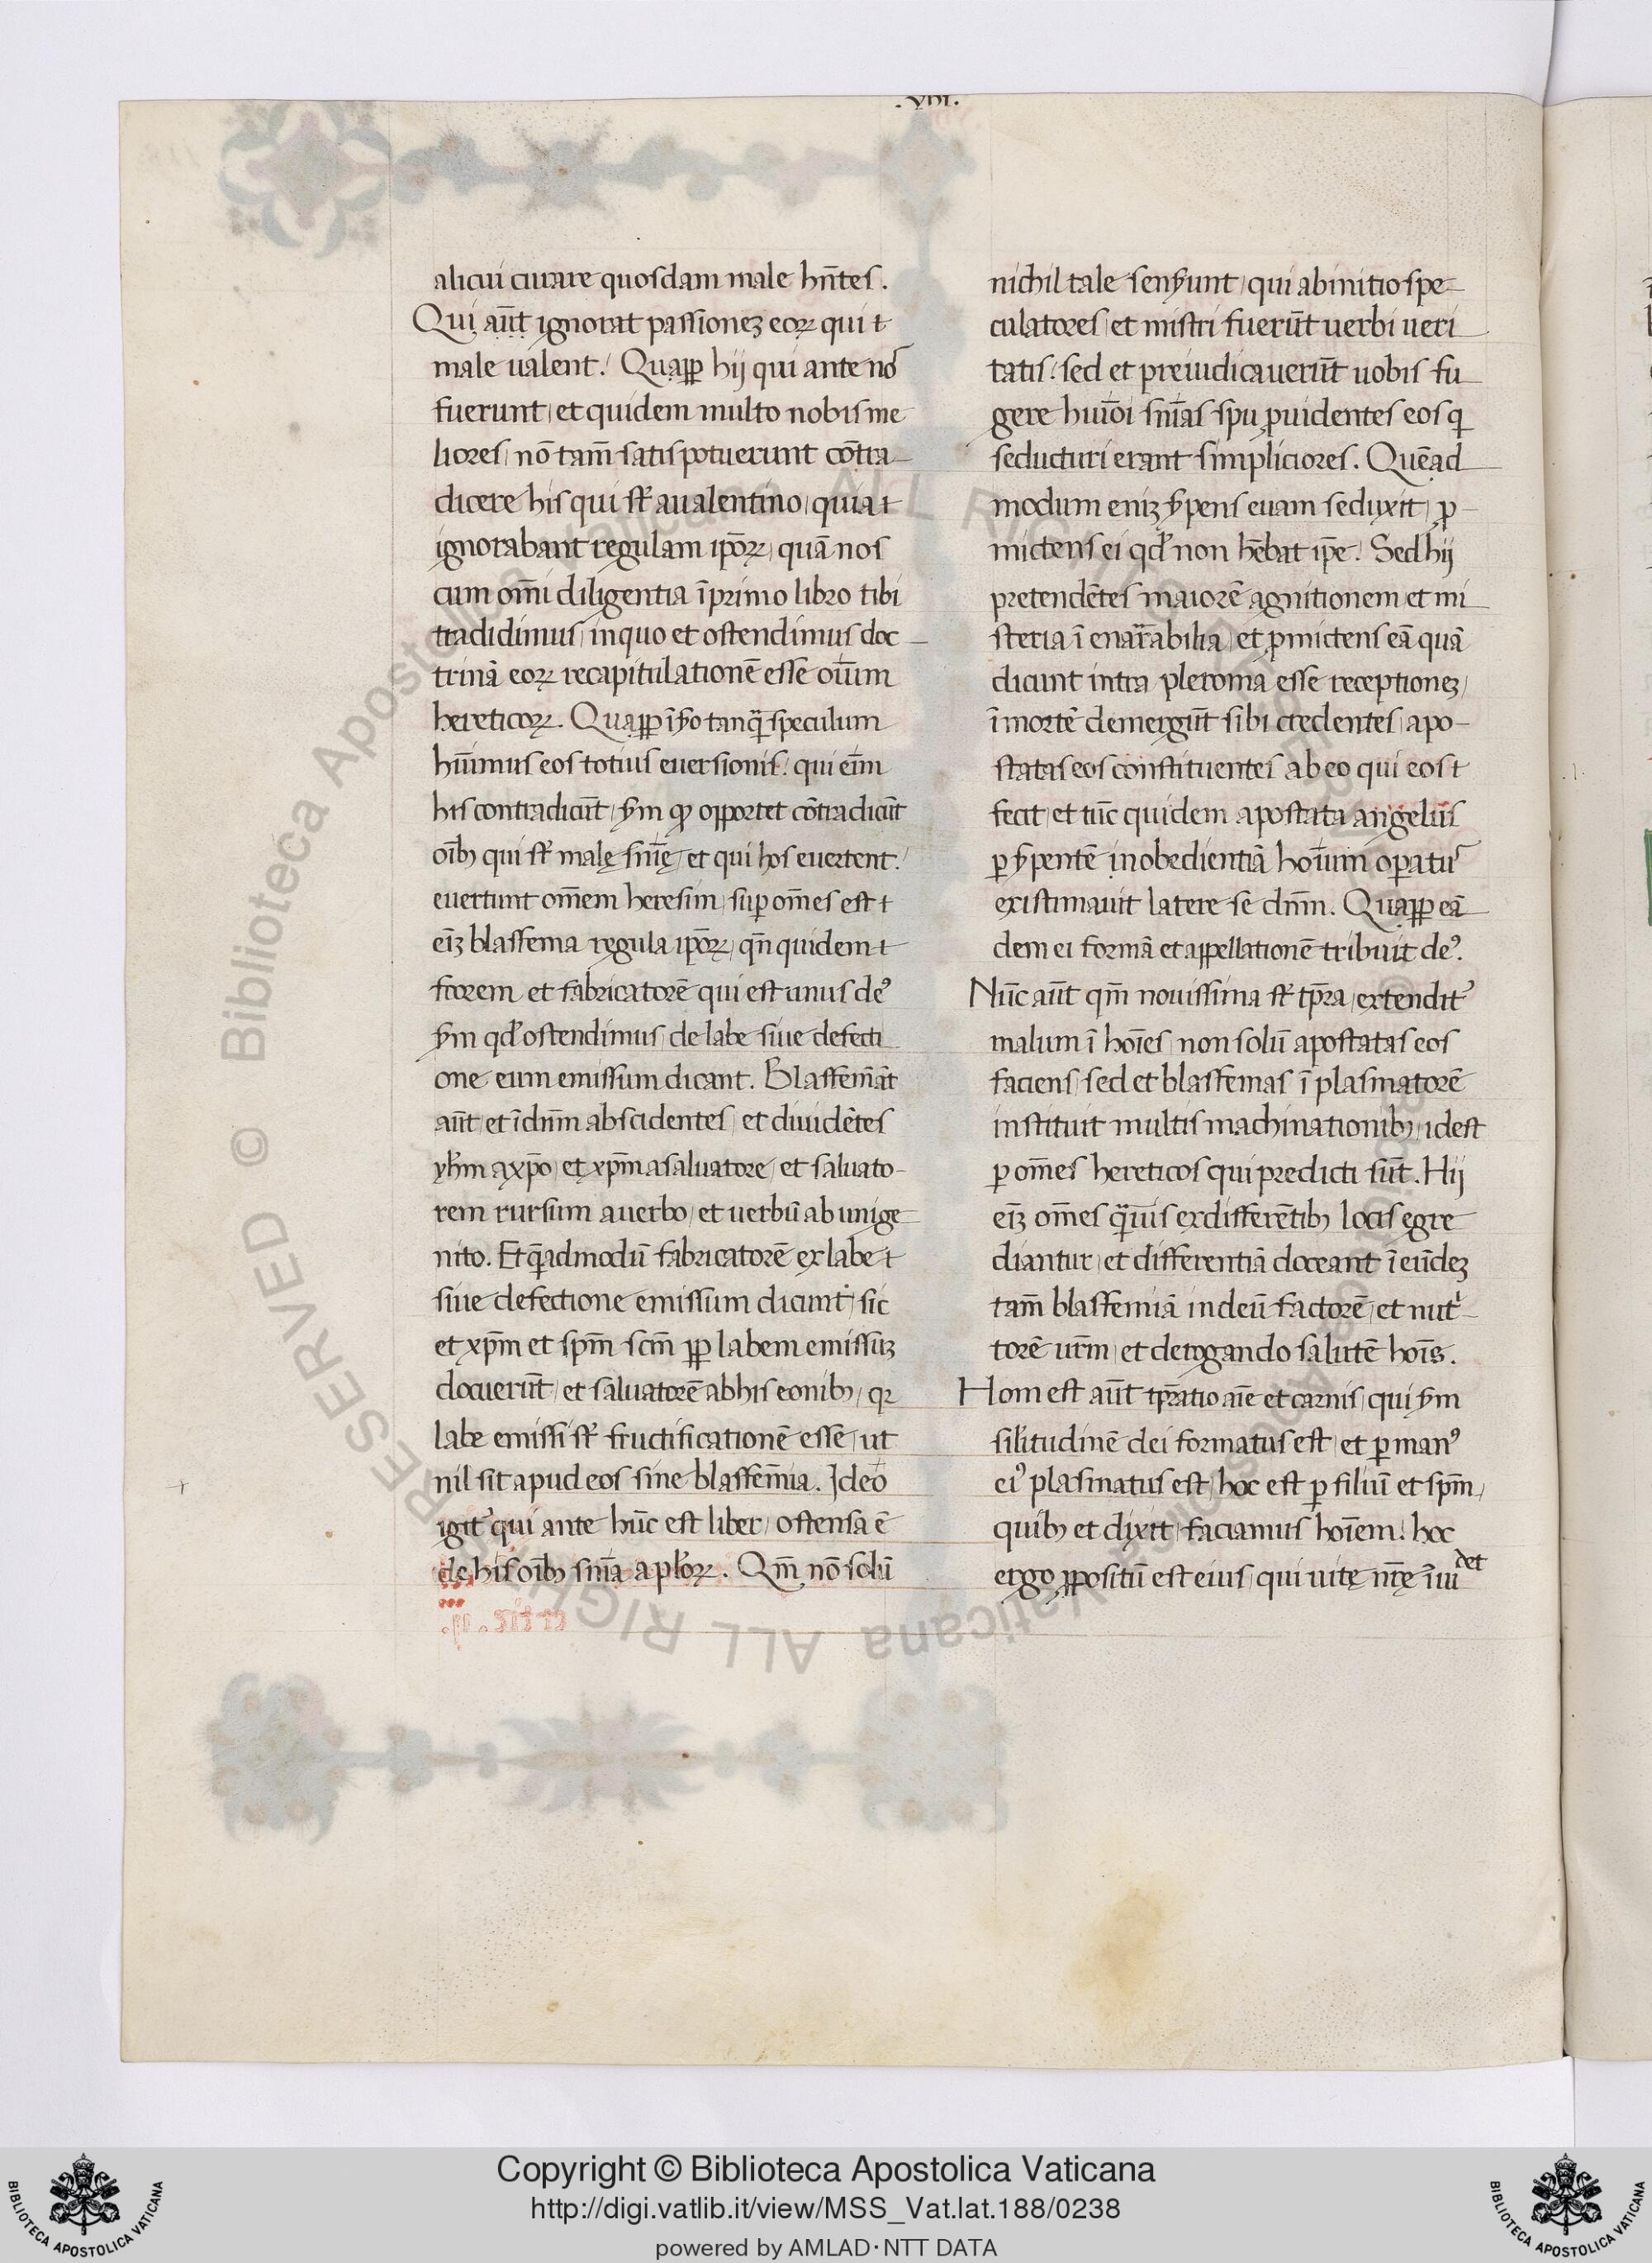 .VIII.
alicui curare quosdam male hn̄tes.
Qui aūt ignorat passionez eoꝝ qui t
male ualent. Quaꝓp hij qui ante nos
fuerunt, et quidem multo nobis me
liores, nō tam̄ satis potuerunt cōtra
dicere his qui st̄ a ualentino, quia t
ignorabant regulam ipōꝝ, quā nos
cum om̄i diligentia ī primo libro tibi
tradidimus, in quo et ostendimus doc
trinā eoꝝ recapitulationē esse oīum
hereticoꝝ. Quaꝓp ī ẜo tanꝙ̄ speculum
hūimus eos totius euersionis. qui eīm
his contradicūt, ẜm ꝙ opportet cōtradicūt
oīb; qui st̄ malę sn̄ię, et qui hos euertent.
euertunt om̄em heresim, suꝑ om̄es est t
eīz blasfema regula ipōꝝ, qn̄ quidem t
ftorem et fabricatorē qui est unus deꝰ
ẜm qd̓ ostendimus, de labe siue defecti
one eum emissum dicant. Blasfemāt
aūt, et ī dn̄m abscidentes, et diuidētes
yhm̄ a xp̄o, et xp̄m a saluatore, et saluato-
rem rursum a uerbo, et uerbū ab unige
nito. Et q̄admodū fabricatorē ex labe t
siue defectione emissum dicunt, sic
et xp̄m et sp̄m sc̄m ꝓp labem emissuz
docuerūt, et saluatorē ab his eonib;, qꝛ
labe emissi st̄ fructificationē esse, ut
nil sit apud eos sine blasfemia. Ideo
igit̓ qui ante hūc est liber, ostensa ē
de his oīb; sn̄ia aplōꝝ. Qm̄ nō solū
nichil tale senẜunt, qui ab initio spe
culatores, et mīstri fuerūt uerbi ueri
tatis. sed et preiudicauerūt uobis fu
gere huiōi sn̄ias spu ꝓuidentes eos q̨
seducturi erant simpliciores. Quēad
modum eniz ẜpens euam seduxit, ꝓ-
mictens ei qd̓ non hēbat ip̄e. Sed hij
pretendētes maiorē agnitionem, et mi
steria ī enarrabilia, et ꝓmictens eā quā
dicunt intra pleroma esse receptionez,
ī mortē demergūt sibi credentes, apo-
statas eos constituentes ab eo qui eos t
fecit, et tūc quidem apostata angelus
ꝑ ẜpentē inobedientiā hoīum operatus
existimauit latere se dn̄m. Quaꝓp eā
dem ei formā et appellationē tribuit deꝰ.
Nūc aūt qm̄ nouissima st̄ tp̄ra, extendit̓
malum ī hoīes, non solū apostatas eos
faciens, sed et blasfemas ī plasmatorē
instituit multis machinationib;, idest
ꝑ om̄es hereticos qui predicti sūt. Hij
eīz om̄es q̄uis ex differētib; locis egre
diantur, et differentiā doceant ī eūdez
tam̄ blasfemiā in deū factorē, et nutͥ-
torē ur̄m, et derogando salutē hoīs.
Hom est aūt tp̄ratio aīe et carnis, qui ẜm
silitudinē dei formatus est, et ꝑ manꝰ
eiꝰ plasmatus est, hoc est ꝑ filiū et sp̄m,
quib; et dixit, faciamus hoīem. hoc
ergo ꝓpositū est eius, qui uitę nr̄ę īui
det